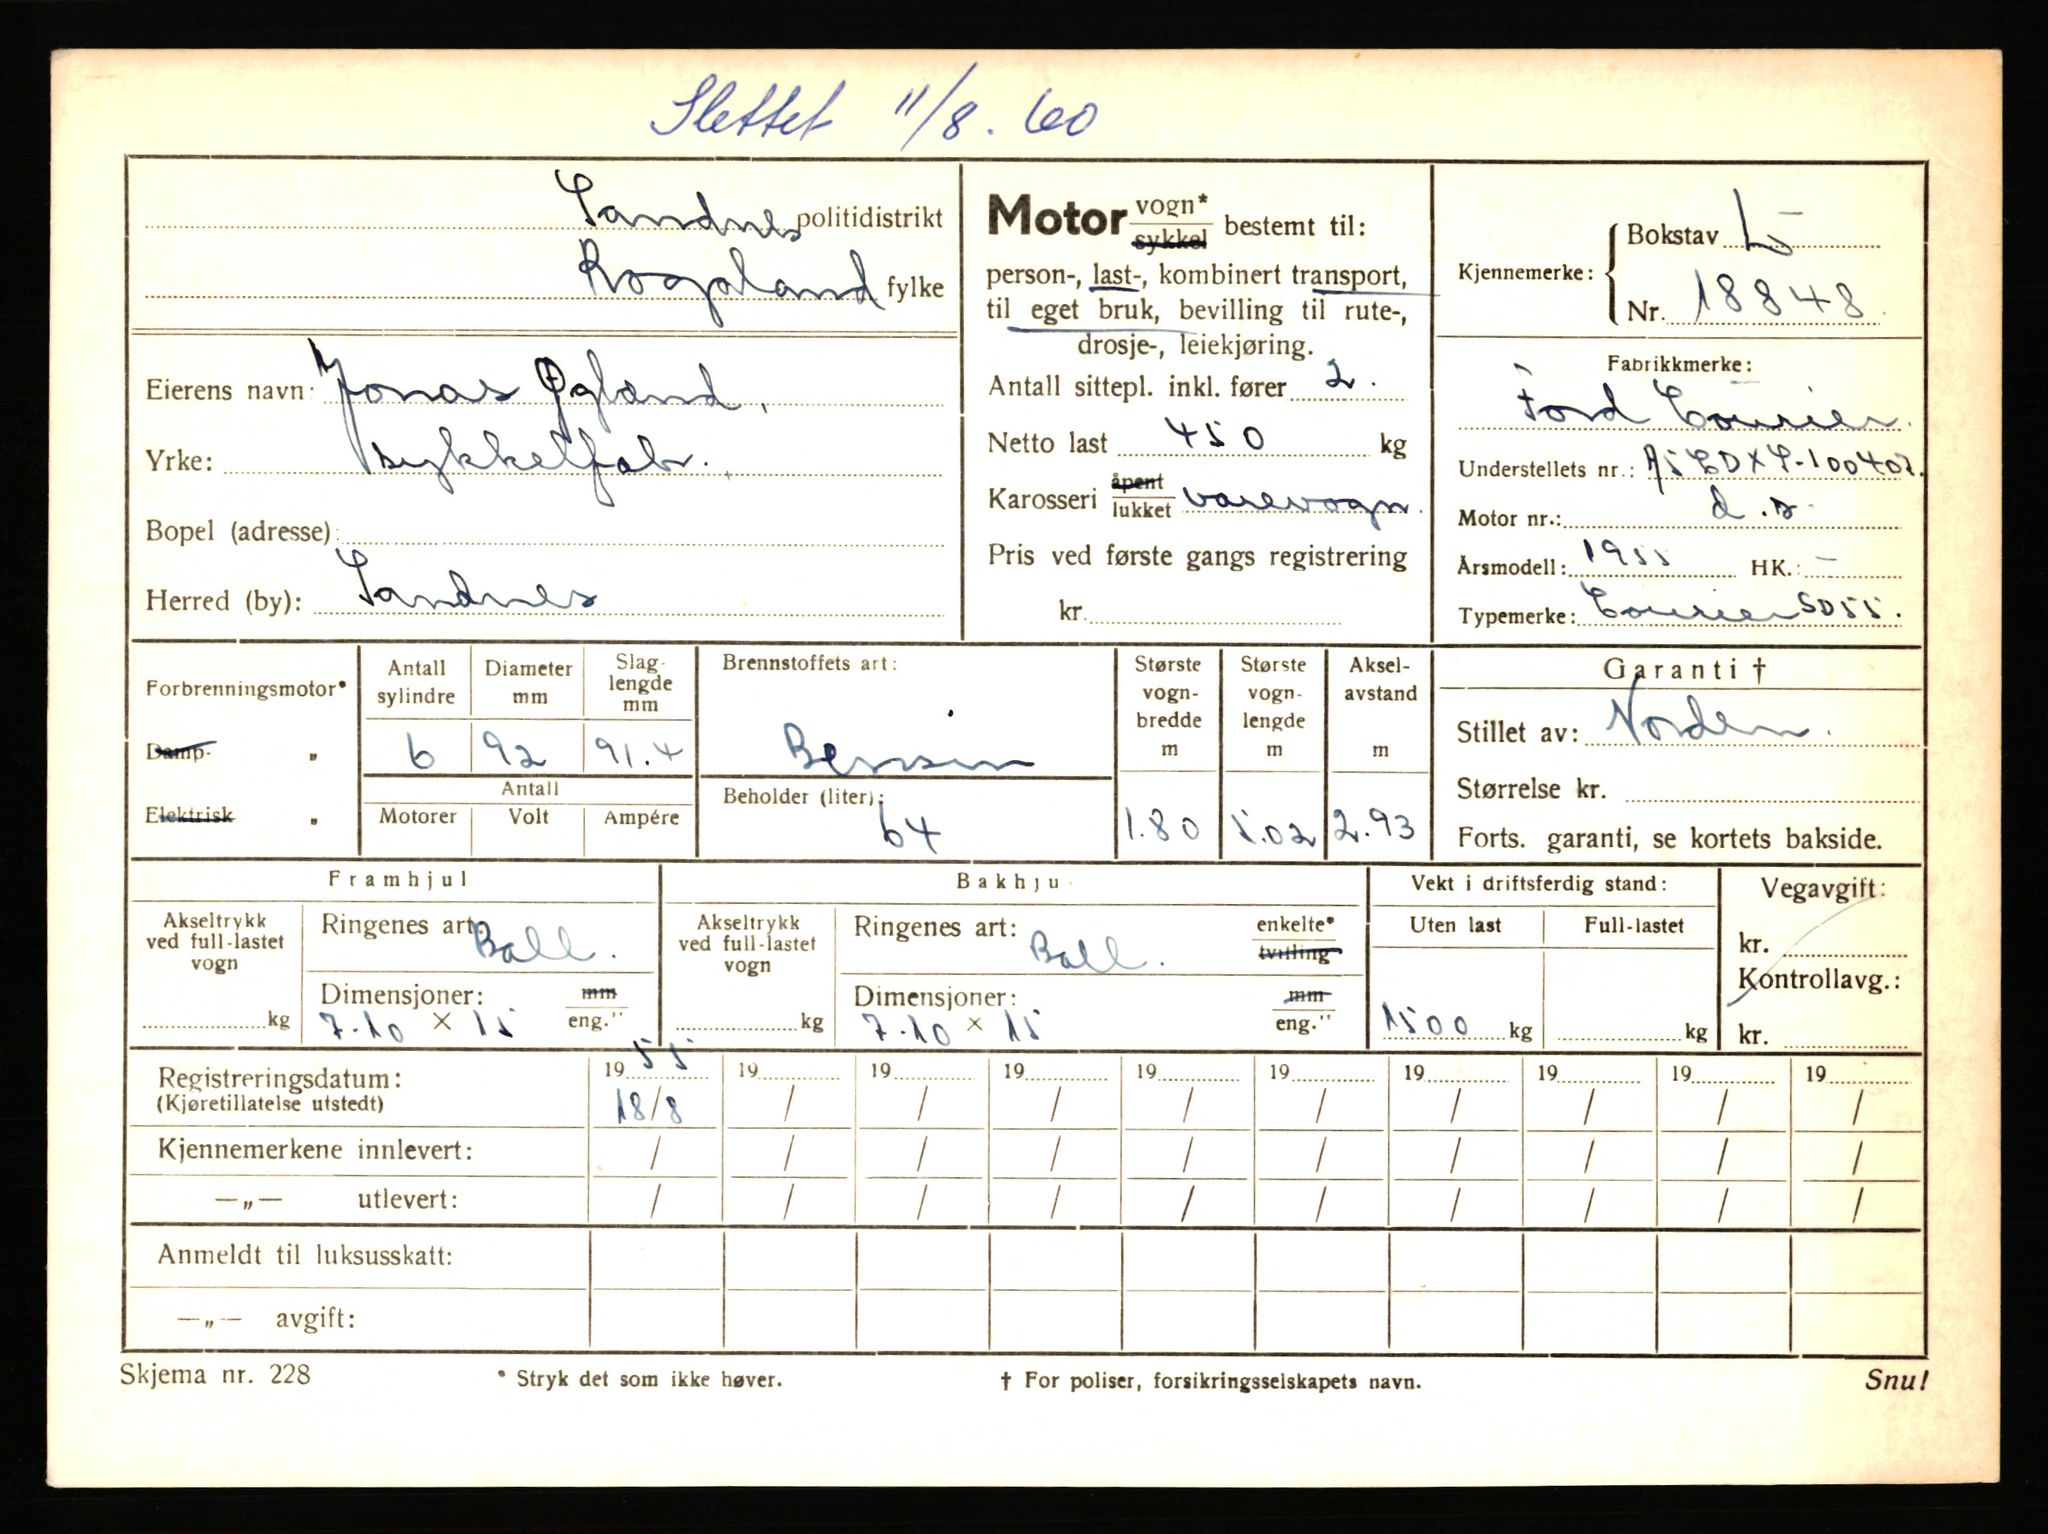 Slettet 11/8. 60
Sandnes politidistrikt
Rogaland fylke
Eierens navn: Jonas Øgland.
Yrke: sykkelfabr.
Bopel (adresse):
Herred (by): Sandnes
Motor vogn* sykkel bestemt til:
person-, last-, kombinert transport,
til eget bruk, bevilling til rute-,
drosje-, leiekjøring.
Antall sittepl. inkl. fører 2.
Netto last 450 kg
Karosseri åpent lukket varevogn.
Pris ved første gangs registrering
kr.
Kjennemerke: Bokstav L
Nr. 18848.
Fabrikkmerke:
Ford Courier.
Understellets nr.:
Motor nr.: d.s.
Årsmodell: 1955 HK.: -
Typemerke: Courier SD55.
Forbrenningsmotor*
Damp- „
Elektrisk „
Antall sylindre
Diameter mm
Slag-lengde mm
6 92 91.4
Antall
Motorer Volt Ampére
Brennstoffets art:
Bensin
Beholder (liter):
64
Største vogn-bredde m
1.80
Største vogn-lengde m
5.02
Aksel-avstand m
2.93
Garanti †
Stillet av: Norden.
Størrelse kr.
Forts. garanti, se kortets bakside.
Framhjul
Akseltrykk ved full-lastet vogn
kg
Ringenes art: Ball.
Dimensjoner: mm eng."
7.10 × 15
Bakhju
Akseltrykk ved full-lastet vogn
kg
Ringenes art: Ball. enkelte* tvilling
Dimensjoner: mm eng."
7.10 × 15
Vekt i driftsferdig stand:
Uten last Full-lastet
1500 kg kg
Vegavgift:
kr.
Kontrollavg.:
kr.
Registreringsdatum: 19 55 19 19 19 19 19 19 19 19 19
(Kjøretillatelse utstedt) 18/8 / / / / / / / / /
Kjennemerkene innlevert: / / / / / / / / / /
—„— utlevert: / / / / / / / / / /
Anmeldt til luksusskatt:
—„— avgift:
Skjema nr. 228 * Stryk det som ikke høver. † For poliser, forsikringsselskapets navn. Snu!